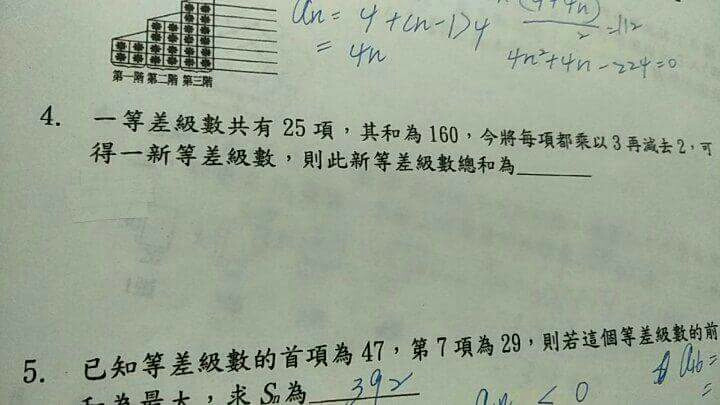 an = 4 + (n-1)4
= 4n
2 = 112
4n²+4n-224=0
第一階 第二階 第三階
4. 一等差級數共有 25 項，其和為 160，今將每項都乘以 3 再減去 2，可
得一新等差級數，則此新等差級數總和為
5. 已知等差級數的首項為 47，第 7 項為 29，則若這個等差級數的前
和為最大，求 Sn 為 392
an < 0